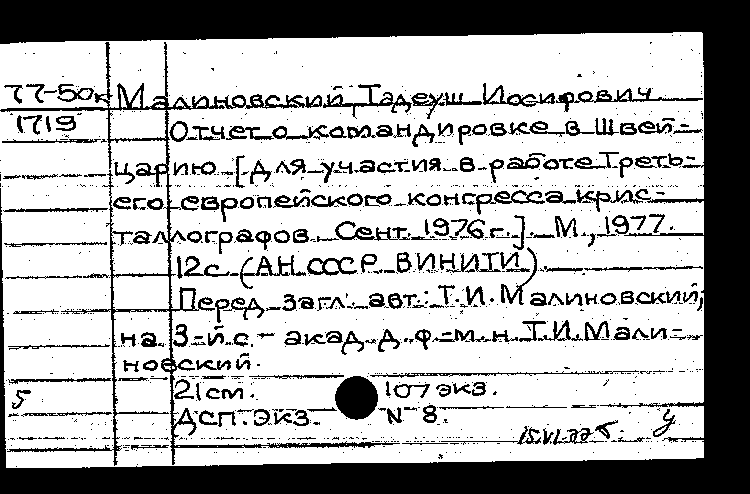 77-50к Малиновский, Тадеуш Иосифович
1719 Отчет о командировке в Швей-
царию [для участия в работе Треть-
его европейского конгресса крис-
таллографов. Сент. 1976 г.]. М., 1977.
12 с. (АН СССР. ВИНИТИ).
Перед загл. авт.: Т.И. Малиновский;
на 3-й с. – акад. д. ф.-м. н. Т.И. Мали-
новский.
5 21 см. 107 экз.
ДСП. Экз. N 8.
15.VI.77